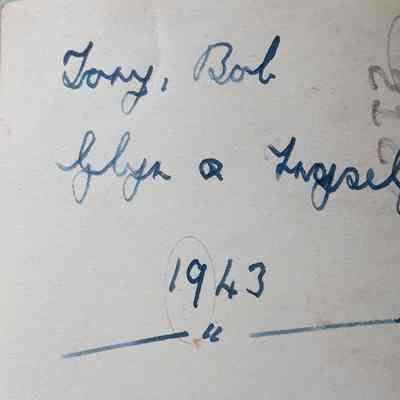 Tony, Bob
Glyn &
1943
"